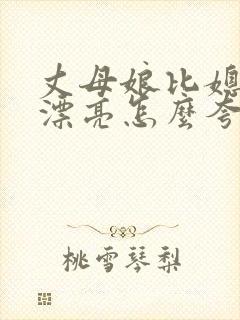 丈母娘比媳
漂亮怎麼夸
桃雪琴梨